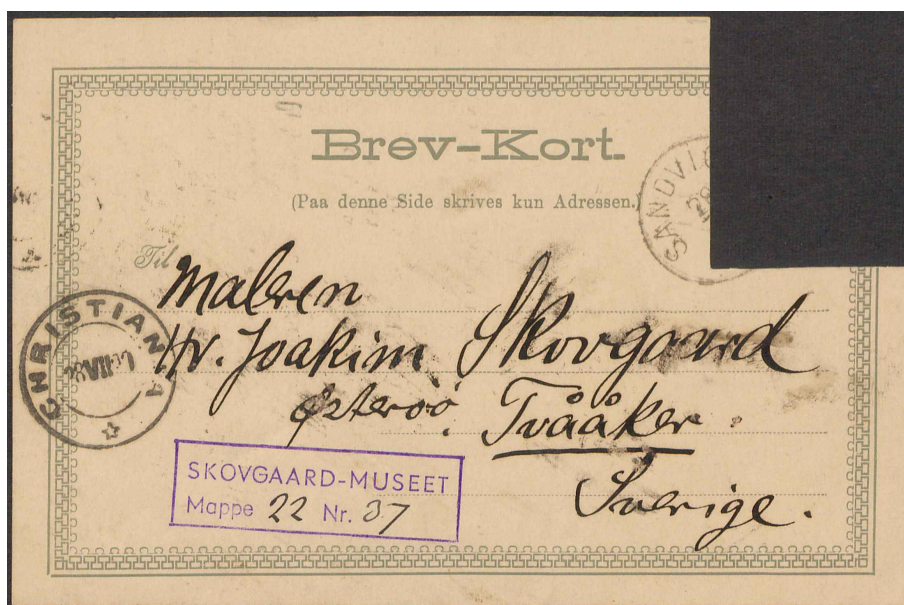 Brev-Kort.
(Paa denne Side skrives kun Adressen.)
SANDVI
28
Til Maleren
Hr. Joakim Skovgaard
Österöö. Tvååker.
Sverige.
CHRISTIANIA
28 VII
SKOVGAARD-MUSEET
Mappe 22 Nr. 37